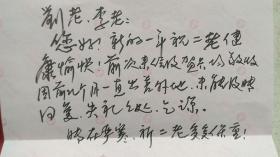 刘老、李老:
您好!新的一年祝二老健
康愉快!前次来信及贺片均敬收
因前几个月一直出差外地,未能收时
回复,失礼之处,乞谅。
时在严寒,祈二老多多保重!